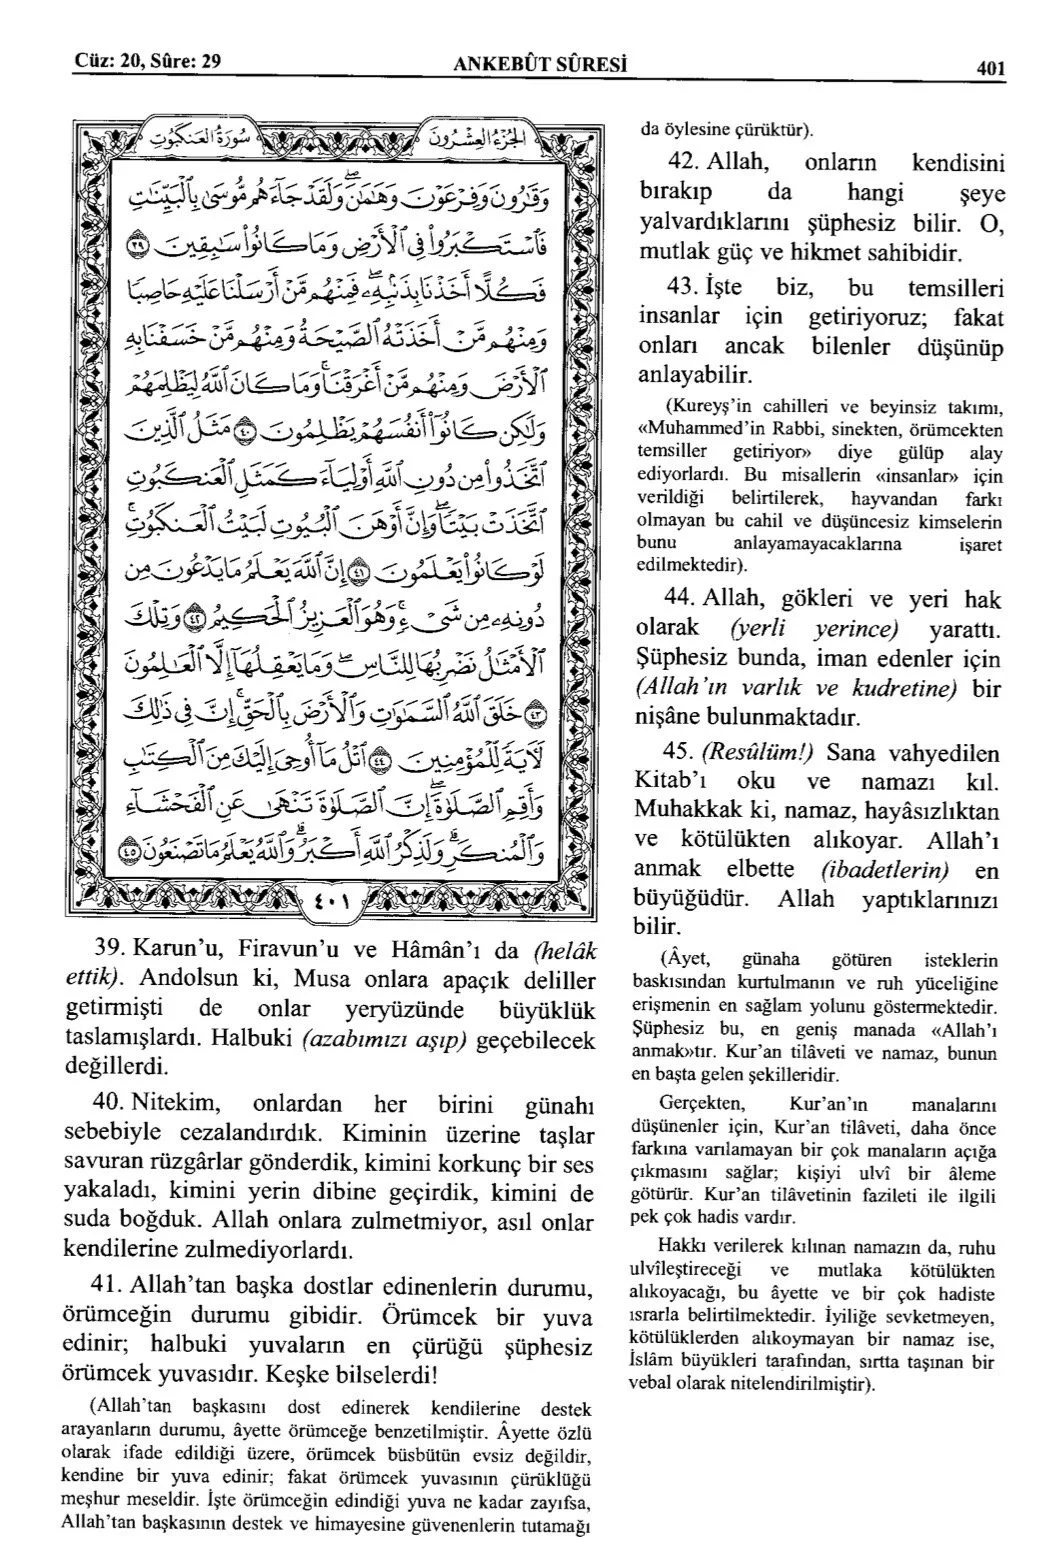 Cüz: 20, Sûre: 29
ANKEBÛT SÛRESİ
401
سُورَةُ العَنْكَبُوتِ
الجُزْءُ العِشْرُونَ
وَقَٰرُونَ وَفِرْعَوْنَ وَهَٰمَٰنَۖ وَلَقَدْ جَآءَهُم مُّوسَىٰ بِالْبَيِّنَٰتِ
فَاسْتَكْبَرُوا۟ فِى الْأَرْضِ وَمَا كَانُوا۟ سَٰبِقِينَ ٣٩
فَكُلًّا أَخَذْنَا بِذَنۢبِهِۦۖ فَمِنْهُم مَّنْ أَرْسَلْنَا عَلَيْهِ حَاصِبًا
وَمِنْهُم مَّنْ أَخَذَتْهُ الصَّيْحَةُ وَمِنْهُم مَّنْ خَسَفْنَا بِهِ
الْأَرْضَ وَمِنْهُم مَّنْ أَغْرَقْنَاۚ وَمَا كَانَ اللَّهُ لِيَظْلِمَهُمْ
وَلَٰكِن كَانُوٓا۟ أَنفُسَهُمْ يَظْلِمُونَ ٤٠ مَثَلُ الَّذِينَ
اتَّخَذُوا۟ مِن دُونِ اللَّهِ أَوْلِيَآءَ كَمَثَلِ الْعَنكَبُوتِ
اتَّخَذَتْ بَيْتًاۖ وَإِنَّ أَوْهَنَ الْبُيُوتِ لَبَيْتُ الْعَنكَبُوتِۚ
لَوْ كَانُوا۟ يَعْلَمُونَ ٤١ إِنَّ اللَّهَ يَعْلَمُ مَا يَدْعُونَ مِن
دُونِهِۦ مِن شَىْءٍۚ وَهُوَ الْعَزِيزُ الْحَكِيمُ ٤٢ وَتِلْكَ
الْأَمْثَٰلُ نَضْرِبُهَا لِلنَّاسِۖ وَمَا يَعْقِلُهَآ إِلَّا الْعَٰلِمُونَ
٤٣ خَلَقَ اللَّهُ السَّمَٰوَٰتِ وَالْأَرْضَ بِالْحَقِّۚ إِنَّ فِى ذَٰلِكَ
لَآيَةً لِّلْمُؤْمِنِينَ ٤٤ اتْلُ مَآ أُوحِىَ إِلَيْكَ مِنَ الْكِتَٰبِ
وَأَقِمِ الصَّلَوٰةَۖ إِنَّ الصَّلَوٰةَ تَنْهَىٰ عَنِ الْفَحْشَآءِ
وَالْمُنكَرِۗ وَلَذِكْرُ اللَّهِ أَكْبَرُۗ وَاللَّهُ يَعْلَمُ مَا تَصْنَعُونَ ٤٥
٤٠١
39. Karun’u, Firavun’u ve Hâmân’ı da (helâk
ettik). Andolsun ki, Musa onlara apaçık deliller
getirmişti de onlar yeryüzünde büyüklük
taslamışlardı. Halbuki (azabımızı aşıp) geçebilecek
değillerdi.
40. Nitekim, onlardan her birini günahı
sebebiyle cezalandırdık. Kiminin üzerine taşlar
savuran rüzgârlar gönderdik, kimini korkunç bir ses
yakaladı, kimini yerin dibine geçirdik, kimini de
suda boğduk. Allah onlara zulmetmiyor, asıl onlar
kendilerine zulmediyorlardı.
41. Allah’tan başka dostlar edinenlerin durumu,
örümceğin durumu gibidir. Örümcek bir yuva
edinir; halbuki yuvaların en çürüğü şüphesiz
örümcek yuvasıdır. Keşke bilselerdi!
(Allah’tan başkasını dost edinerek kendilerine destek
arayanların durumu, âyette örümceğe benzetilmiştir. Âyette özlü
olarak ifade edildiği üzere, örümcek büsbütün evsiz değildir,
kendine bir yuva edinir; fakat örümcek yuvasının çürüklüğü
meşhur meseldir. İşte örümceğin edindiği yuva ne kadar zayıfsa,
Allah’tan başkasının destek ve himayesine güvenenlerin tutamağı
da öylesine çürüktür).
42. Allah, onların kendisini
bırakıp da hangi şeye
yalvardıklarını şüphesiz bilir. O,
mutlak güç ve hikmet sahibidir.
43. İşte biz, bu temsilleri
insanlar için getiriyoruz; fakat
onları ancak bilenler düşünüp
anlayabilir.
(Kureyş’in cahilleri ve beyinsiz takımı,
«Muhammed’in Rabbi, sinekten, örümcekten
temsiller getiriyor» diye gülüp alay
ediyorlardı. Bu misallerin «insanlar» için
verildiği belirtilerek, hayvandan farkı
olmayan bu cahil ve düşüncesiz kimselerin
bunu anlayamayacaklarına işaret
edilmektedir).
44. Allah, gökleri ve yeri hak
olarak (yerli yerince) yarattı.
Şüphesiz bunda, iman edenler için
(Allah’ın varlık ve kudretine) bir
nişâne bulunmaktadır.
45. (Resûlüm!) Sana vahyedilen
Kitab’ı oku ve namazı kıl.
Muhakkak ki, namaz, hayâsızlıktan
ve kötülükten alıkoyar. Allah’ı
anmak elbette (ibadetlerin) en
büyüğüdür. Allah yaptıklarınızı
bilir.
(Âyet, günaha götüren isteklerin
baskısından kurtulmanın ve ruh yüceliğine
erişmenin en sağlam yolunu göstermektedir.
Şüphesiz bu, en geniş manada «Allah’ı
anmak»tır. Kur’an tilâveti ve namaz, bunun
en başta gelen şekilleridir.
Gerçekten, Kur’an’ın manalarını
düşünenler için, Kur’an tilâveti, daha önce
farkına varılamayan bir çok manaların açığa
çıkmasını sağlar; kişiyi ulvî bir âleme
götürür. Kur’an tilâvetinin fazileti ile ilgili
pek çok hadis vardır.
Hakkı verilerek kılınan namazın da, ruhu
ulvîleştireceği ve mutlaka kötülükten
alıkoyacağı, bu âyette ve bir çok hadiste
ısrarla belirtilmektedir. İyiliğe sevketmeyen,
kötülüklerden alıkoymayan bir namaz ise,
İslâm büyükleri tarafından, sırtta taşınan bir
vebal olarak nitelendirilmiştir).